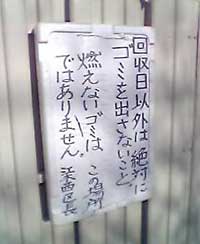 回収日以外は絶対に
ゴミを出さないこと
燃えないゴミは この場所
ではありません。 区長